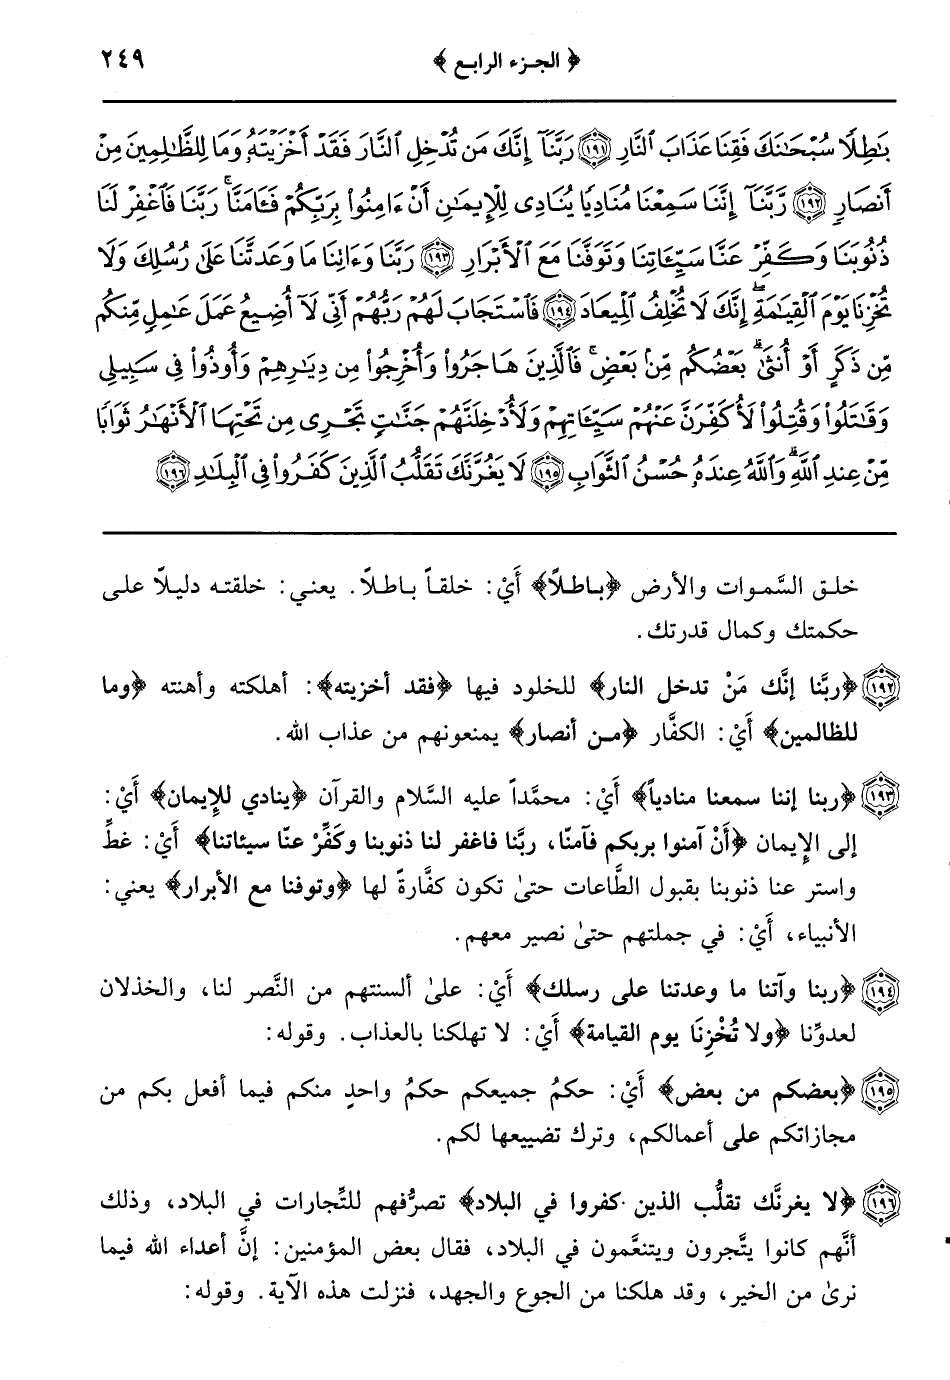 ﴿ الجزء الرابع ﴾ ٢٤٩
بَٰطِلًا سُبْحَٰنَكَ فَقِنَا عَذَابَ ٱلنَّارِ ١٩١ رَبَّنَآ إِنَّكَ مَن تُدْخِلِ ٱلنَّارَ فَقَدْ أَخْزَيْتَهُۥ وَمَا لِلظَّٰلِمِينَ مِنْ
أَنصَارٍ ١٩٢ رَّبَّنَآ إِنَّنَا سَمِعْنَا مُنَادِيًا يُنَادِى لِلْإِيمَٰنِ أَنْ ءَامِنُوا۟ بِرَبِّكُمْ فَـَٔامَنَّا ۚ رَبَّنَا فَٱغْفِرْ لَنَا
ذُنُوبَنَا وَكَفِّرْ عَنَّا سَيِّـَٔاتِنَا وَتَوَفَّنَا مَعَ ٱلْأَبْرَارِ ١٩٣ رَبَّنَا وَءَاتِنَا مَا وَعَدتَّنَا عَلَىٰ رُسُلِكَ وَلَا
تُخْزِنَا يَوْمَ ٱلْقِيَٰمَةِ ۗ إِنَّكَ لَا تُخْلِفُ ٱلْمِيعَادَ ١٩٤ فَٱسْتَجَابَ لَهُمْ رَبُّهُمْ أَنِّى لَآ أُضِيعُ عَمَلَ عَٰمِلٍ مِّنكُم
مِّن ذَكَرٍ أَوْ أُنثَىٰ ۖ بَعْضُكُم مِّنۢ بَعْضٍ ۖ فَٱلَّذِينَ هَاجَرُوا۟ وَأُخْرِجُوا۟ مِن دِيَٰرِهِمْ وَأُوذُوا۟ فِى سَبِيلِى
وَقَٰتَلُوا۟ وَقُتِلُوا۟ لَأُكَفِّرَنَّ عَنْهُمْ سَيِّـَٔاتِهِمْ وَلَأُدْخِلَنَّهُمْ جَنَّٰتٍ تَجْرِى مِن تَحْتِهَا ٱلْأَنْهَٰرُ ثَوَابًا
مِّنْ عِندِ ٱللَّهِ ۗ وَٱللَّهُ عِندَهُۥ حُسْنُ ٱلثَّوَابِ ١٩٥ لَا يَغُرَّنَّكَ تَقَلُّبُ ٱلَّذِينَ كَفَرُوا۟ فِى ٱلْبِلَٰدِ ١٩٦
خلق السَّموات والأرض ﴿باطلاً﴾ أَيْ: خلقاً باطلاً. يعني: خلقته دليلاً على
حكمتك وكمال قدرتك.
١٩٢ ﴿ربَّنا إنَّك مَنْ تدخل النار﴾ للخلود فيها ﴿فقد أخزيته﴾: أهلكته وأهنته ﴿وما
للظالمين﴾ أَيْ: الكفَّار ﴿من أنصار﴾ يمنعونهم من عذاب الله.
١٩٣ ﴿ربنا إننا سمعنا منادياً﴾ أَيْ: محمَّداً عليه السَّلام والقرآن ﴿ينادي للإِيمان﴾ أَيْ:
إلى الإِيمان ﴿أَنْ آمنوا بربكم فآمنّا، ربَّنا فاغفر لنا ذنوبنا وكَفِّرْ عنّا سيئاتنا﴾ أَيْ: غطِّ
واستر عنا ذنوبنا بقبول الطَّاعات حتىٰ تكون كفَّارةً لها ﴿وتوفنا مع الأبرار﴾ يعني:
الأنبياء، أَيْ: في جملتهم حتىٰ نصير معهم.
١٩٤ ﴿ربنا وآتنا ما وعدتنا على رسلك﴾ أَيْ: علىٰ ألسنتهم من النَّصر لنا، والخذلان
لعدوِّنا ﴿ولا تُخْزِنَا يوم القيامة﴾ أَيْ: لا تهلكنا بالعذاب. وقوله:
١٩٥ ﴿بعضكم من بعض﴾ أَيْ: حكمُ جميعكم حكمُ واحدٍ منكم فيما أفعل بكم من
مجازاتكم على أعمالكم، وترك تضييعها لكم.
١٩٦ ﴿لا يغرنَّك تقلُّب الذين كفروا في البلاد﴾ تصرُّفهم للتِّجارات في البلاد، وذلك
أنَّهم كانوا يتَّجرون ويتنعَّمون في البلاد، فقال بعض المؤمنين: إنَّ أعداء الله فيما
نرىٰ من الخير، وقد هلكنا من الجوع والجهد، فنزلت هذه الآية. وقوله: